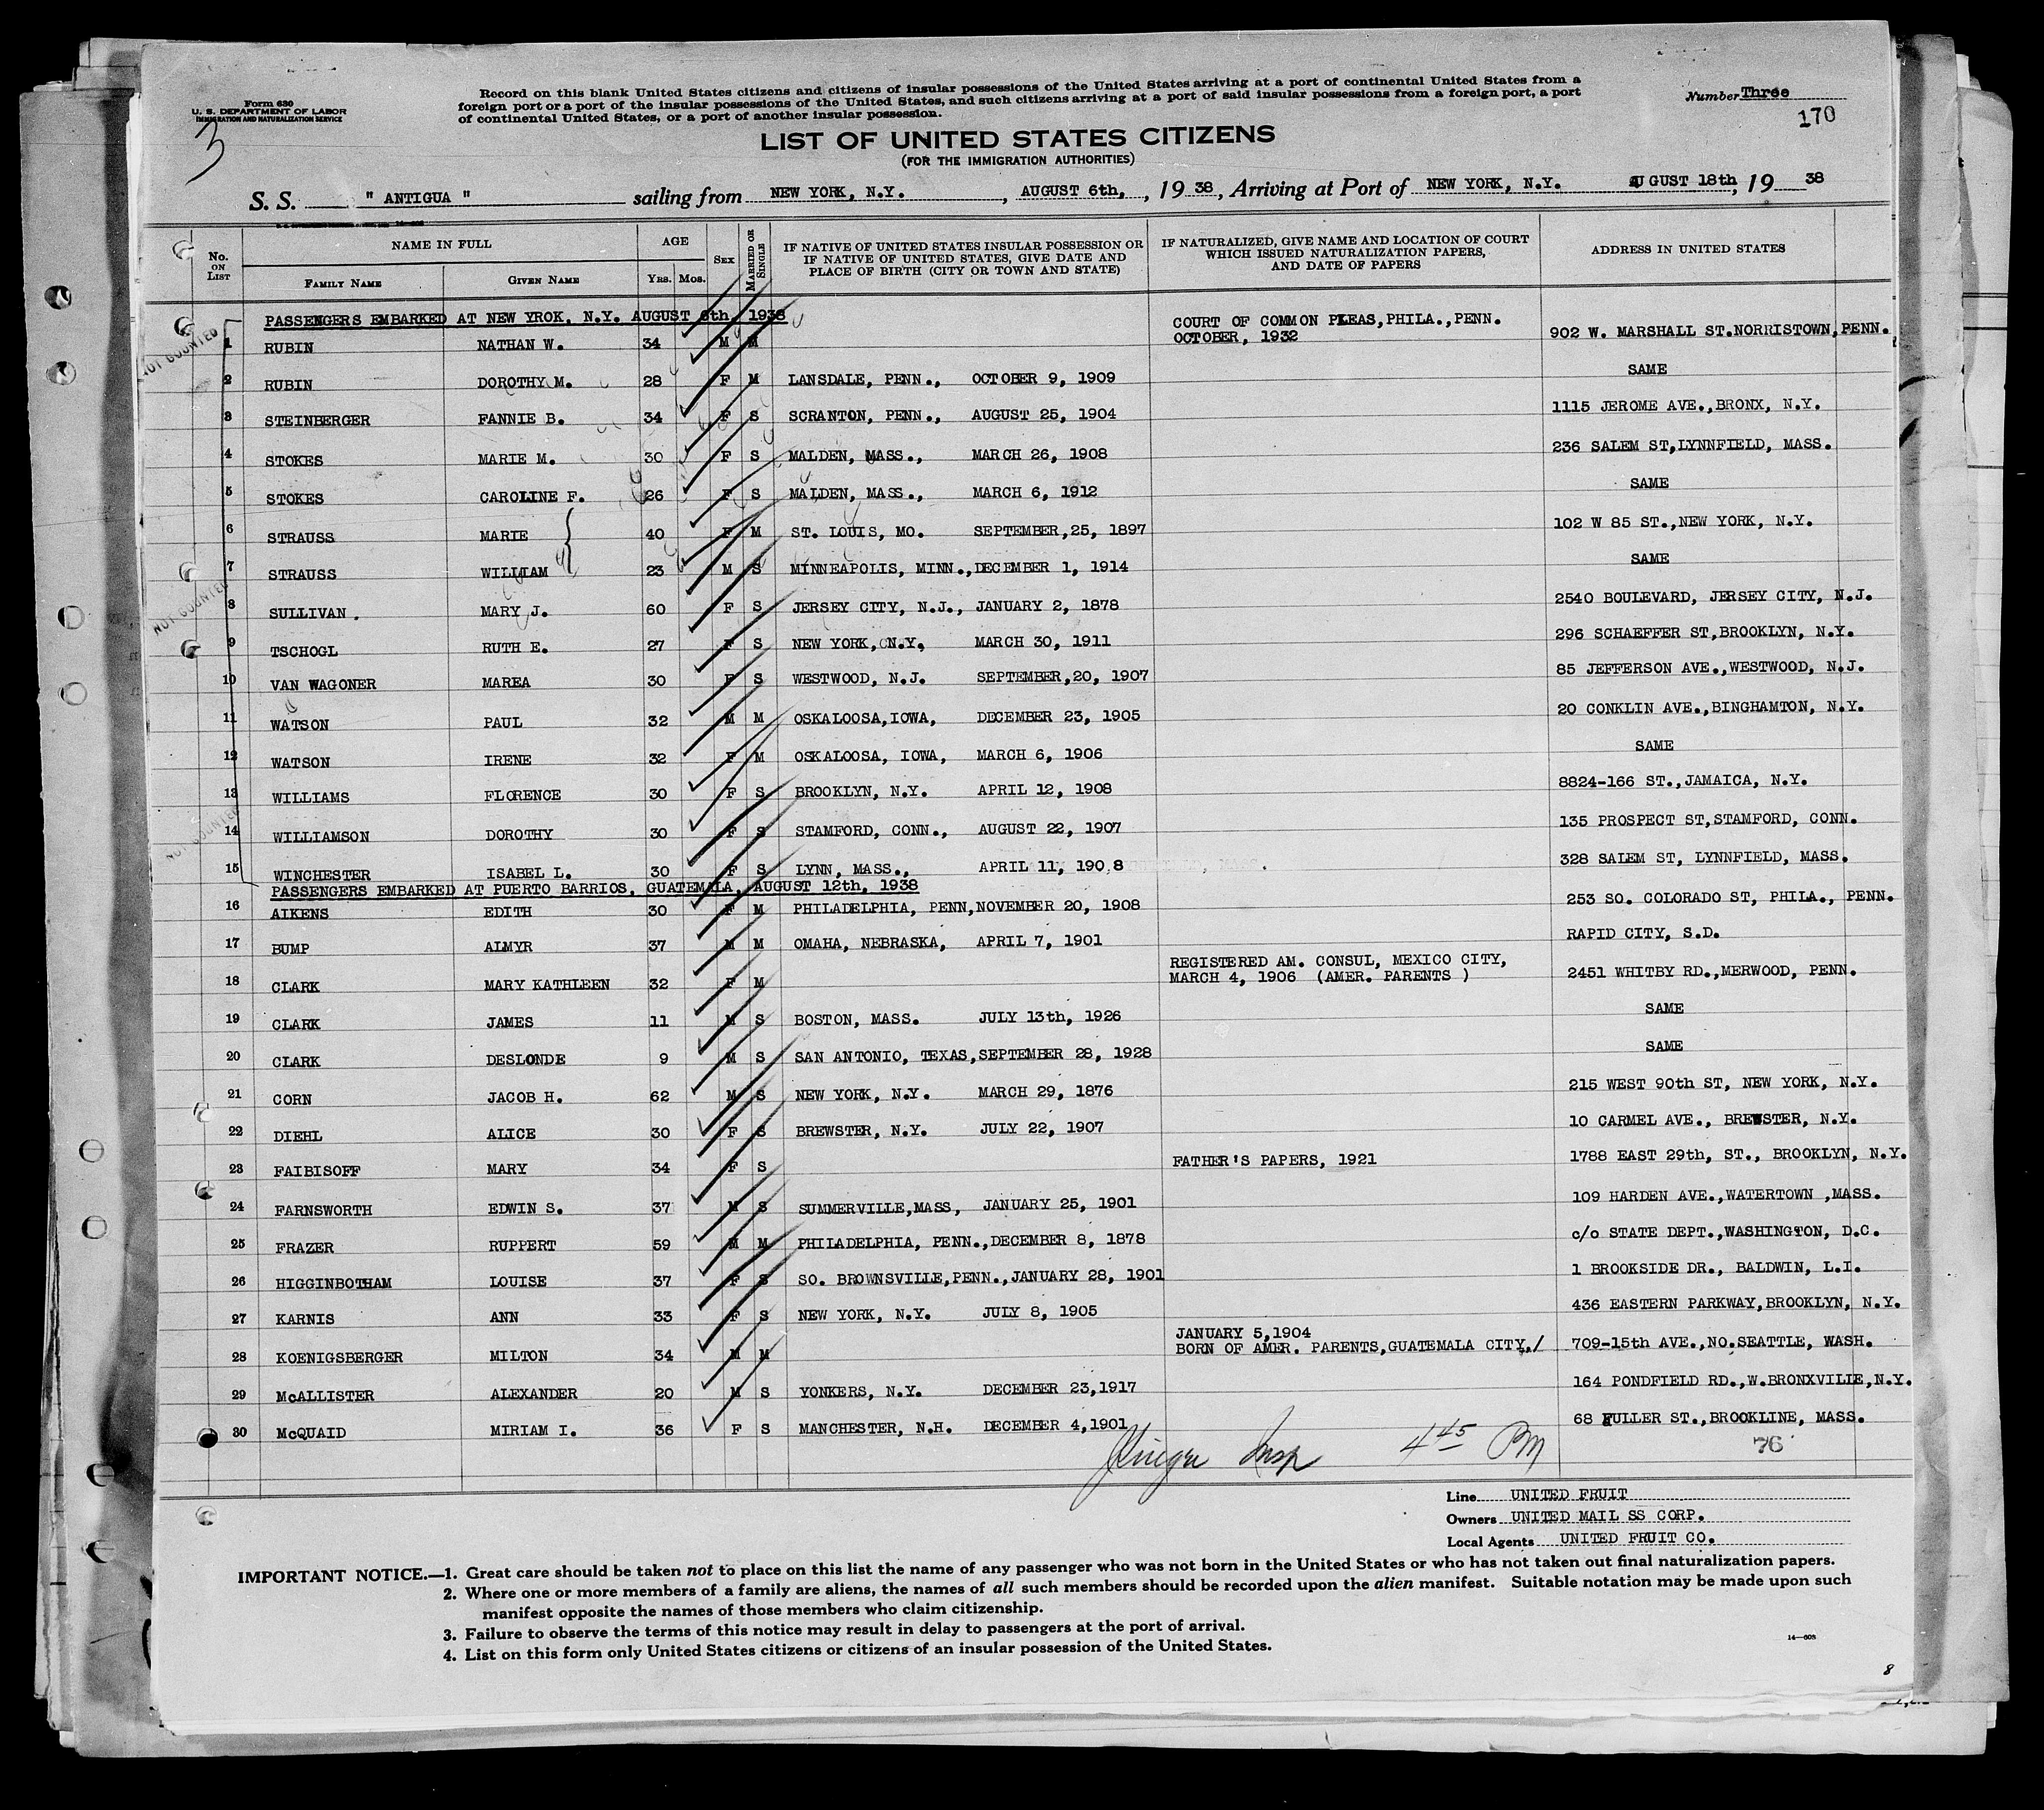 Form 630
U. S. DEPARTMENT OF LABOR
IMMIGRATION AND NATURALIZATION SERVICE
3
Record on this blank United States citizens and citizens of insular possessions of the United States arriving at a port of continental United States from a
foreign port or a port of the insular possessions of the United States, and such citizens arriving at a port of said insular possessions from a foreign port, a port
of continental United States, or a port of another insular possession.
Number Three
170
LIST OF UNITED STATES CITIZENS
(FOR THE IMMIGRATION AUTHORITIES)
S. S. " ANTIGUA " sailing from NEW YORK, N.Y. , AUGUST 6th, , 19 38, Arriving at Port of NEW YORK, N.Y. AUGUST 18th, 19 38
No. ON LIST NAME IN FULL FAMILY NAME GIVEN NAME AGE YRS. MOS. SEX MARRIED OR SINGLE IF NATIVE OF UNITED STATES INSULAR POSSESSION OR IF NATIVE OF UNITED STATES, GIVE DATE AND PLACE OF BIRTH (CITY OR TOWN AND STATE) IF NATURALIZED, GIVE NAME AND LOCATION OF COURT WHICH ISSUED NATURALIZATION PAPERS, AND DATE OF PAPERS ADDRESS IN UNITED STATES
PASSENGERS EMBARKED AT NEW YROK, N.Y. AUGUST 6th, 1938
NOT COUNTED
1 RUBIN NATHAN W. 34 M M COURT OF COMMON PLEAS,PHILA.,PENN. OCTOBER, 1932 902 W. MARSHALL ST.NORRISTOWN,PENN.
2 RUBIN DOROTHY M. 28 F M LANSDALE, PENN., OCTOBER 9, 1909 SAME
3 STEINBERGER FANNIE B. 34 F S SCRANTON, PENN., AUGUST 25, 1904 1115 JEROME AVE.,BRONX, N.Y.
4 STOKES MARIE M. 30 F S MALDEN, MASS., MARCH 26, 1908 236 SALEM ST,LYNNFIELD, MASS.
5 STOKES CAROLINE F. 26 F S MALDEN, MASS., MARCH 6, 1912 SAME
6 STRAUSS MARIE 40 F M ST. LOUIS, MO. SEPTEMBER,25, 1897 102 W 85 ST.,NEW YORK, N.Y.
7 STRAUSS WILLIAM 23 M S MINNEAPOLIS, MINN.,DECEMBER 1, 1914 SAME
NOT COUNTED
8 SULLIVAN . MARY J. 60 F S JERSEY CITY, N.J., JANUARY 2, 1878 2540 BOULEVARD, JERSEY CITY, N.J.
9 TSCHOGL RUTH E. 27 F S NEW YORK, N.Y, MARCH 30, 1911 296 SCHAEFFER ST,BROOKLYN, N.Y.
10 VAN WAGONER MAREA 30 F S WESTWOOD, N.J. SEPTEMBER,20, 1907 85 JEFFERSON AVE.,WESTWOOD, N.J.
11 WATSON PAUL 32 M M OSKALOOSA,IOWA, DECEMBER 23, 1905 20 CONKLIN AVE.,BINGHAMTON, N.Y.
12 WATSON IRENE 32 F M OSKALOOSA, IOWA, MARCH 6, 1906 SAME
13 WILLIAMS FLORENCE 30 F S BROOKLYN, N.Y. APRIL 12, 1908 8824-166 ST.,JAMAICA, N.Y.
NOT COUNTED
14 WILLIAMSON DOROTHY 30 F S STAMFORD, CONN., AUGUST 22, 1907 135 PROSPECT ST,STAMFORD, CONN.
15 WINCHESTER ISABEL L. 30 F S LYNN, MASS., APRIL 11, 190,8 328 SALEM ST, LYNNFIELD, MASS.
PASSENGERS EMBARKED AT PUERTO BARRIOS, GUATEMALA, AUGUST 12th, 1938
16 AIKENS EDITH 30 F M PHILADELPHIA, PENN,NOVEMBER 20, 1908 253 SO. COLORADO ST, PHILA., PENN.
17 BUMP ALMYR 37 M M OMAHA, NEBRASKA, APRIL 7, 1901 RAPID CITY, S.D.
18 CLARK MARY KATHLEEN 32 F M REGISTERED AM. CONSUL, MEXICO CITY, MARCH 4, 1906 (AMER. PARENTS ) 2451 WHITBY RD.,MERWOOD, PENN.
19 CLARK JAMES 11 M S BOSTON, MASS. JULY 13th, 1926 SAME
20 CLARK DESLONDE 9 M S SAN ANTONIO, TEXAS,SEPTEMBER 28, 1928 SAME
21 CORN JACOB H. 62 M S NEW YORK, N.Y. MARCH 29, 1876 215 WEST 90th ST, NEW YORK, N.Y.
22 DIEHL ALICE 30 F S BREWSTER, N.Y. JULY 22, 1907 10 CARMEL AVE., BREWSTER, N.Y.
23 FAIBISOFF MARY 34 F S FATHER'S PAPERS, 1921 1788 EAST 29th, ST., BROOKLYN, N.Y.
24 FARNSWORTH EDWIN S. 37 M S SUMMERVILLE,MASS, JANUARY 25, 1901 109 HARDEN AVE.,WATERTOWN ,MASS.
25 FRAZER RUPPERT 59 M M PHILADELPHIA, PENN.,DECEMBER 8, 1878 c/o STATE DEPT.,WASHINGTON, D.C.
26 HIGGINBOTHAM LOUISE 37 F S SO. BROWNSVILLE,PENN.,JANUARY 28, 1901 1 BROOKSIDE DR., BALDWIN, L.I.
27 KARNIS ANN 33 F S NEW YORK, N.Y. JULY 8, 1905 436 EASTERN PARKWAY,BROOKLYN, N.Y.
28 KOENIGSBERGER MILTON 34 M M JANUARY 5,1904 BORN OF AMER. PARENTS,GUATEMALA CITY,/ 709-15th AVE.,NO.SEATTLE, WASH.
29 McALLISTER ALEXANDER 20 M S YONKERS, N.Y. DECEMBER 23,1917 164 PONDFIELD RD.,W.BRONXVILIE,N.Y.
30 McQUAID MIRIAM I. 36 F S MANCHESTER, N.H. DECEMBER 4,1901 68 FULLER ST.,BROOKLINE, MASS.
Insp 4 45 PM
76
Line UNITED FRUIT
Owners UNITED MAIL SS CORP.
Local Agents UNITED FRUIT CO.
IMPORTANT NOTICE.—1. Great care should be taken not to place on this list the name of any passenger who was not born in the United States or who has not taken out final naturalization papers.
2. Where one or more members of a family are aliens, the names of all such members should be recorded upon the alien manifest. Suitable notation may be made upon such
manifest opposite the names of those members who claim citizenship.
3. Failure to observe the terms of this notice may result in delay to passengers at the port of arrival.
4. List on this form only United States citizens or citizens of an insular possession of the United States.
8